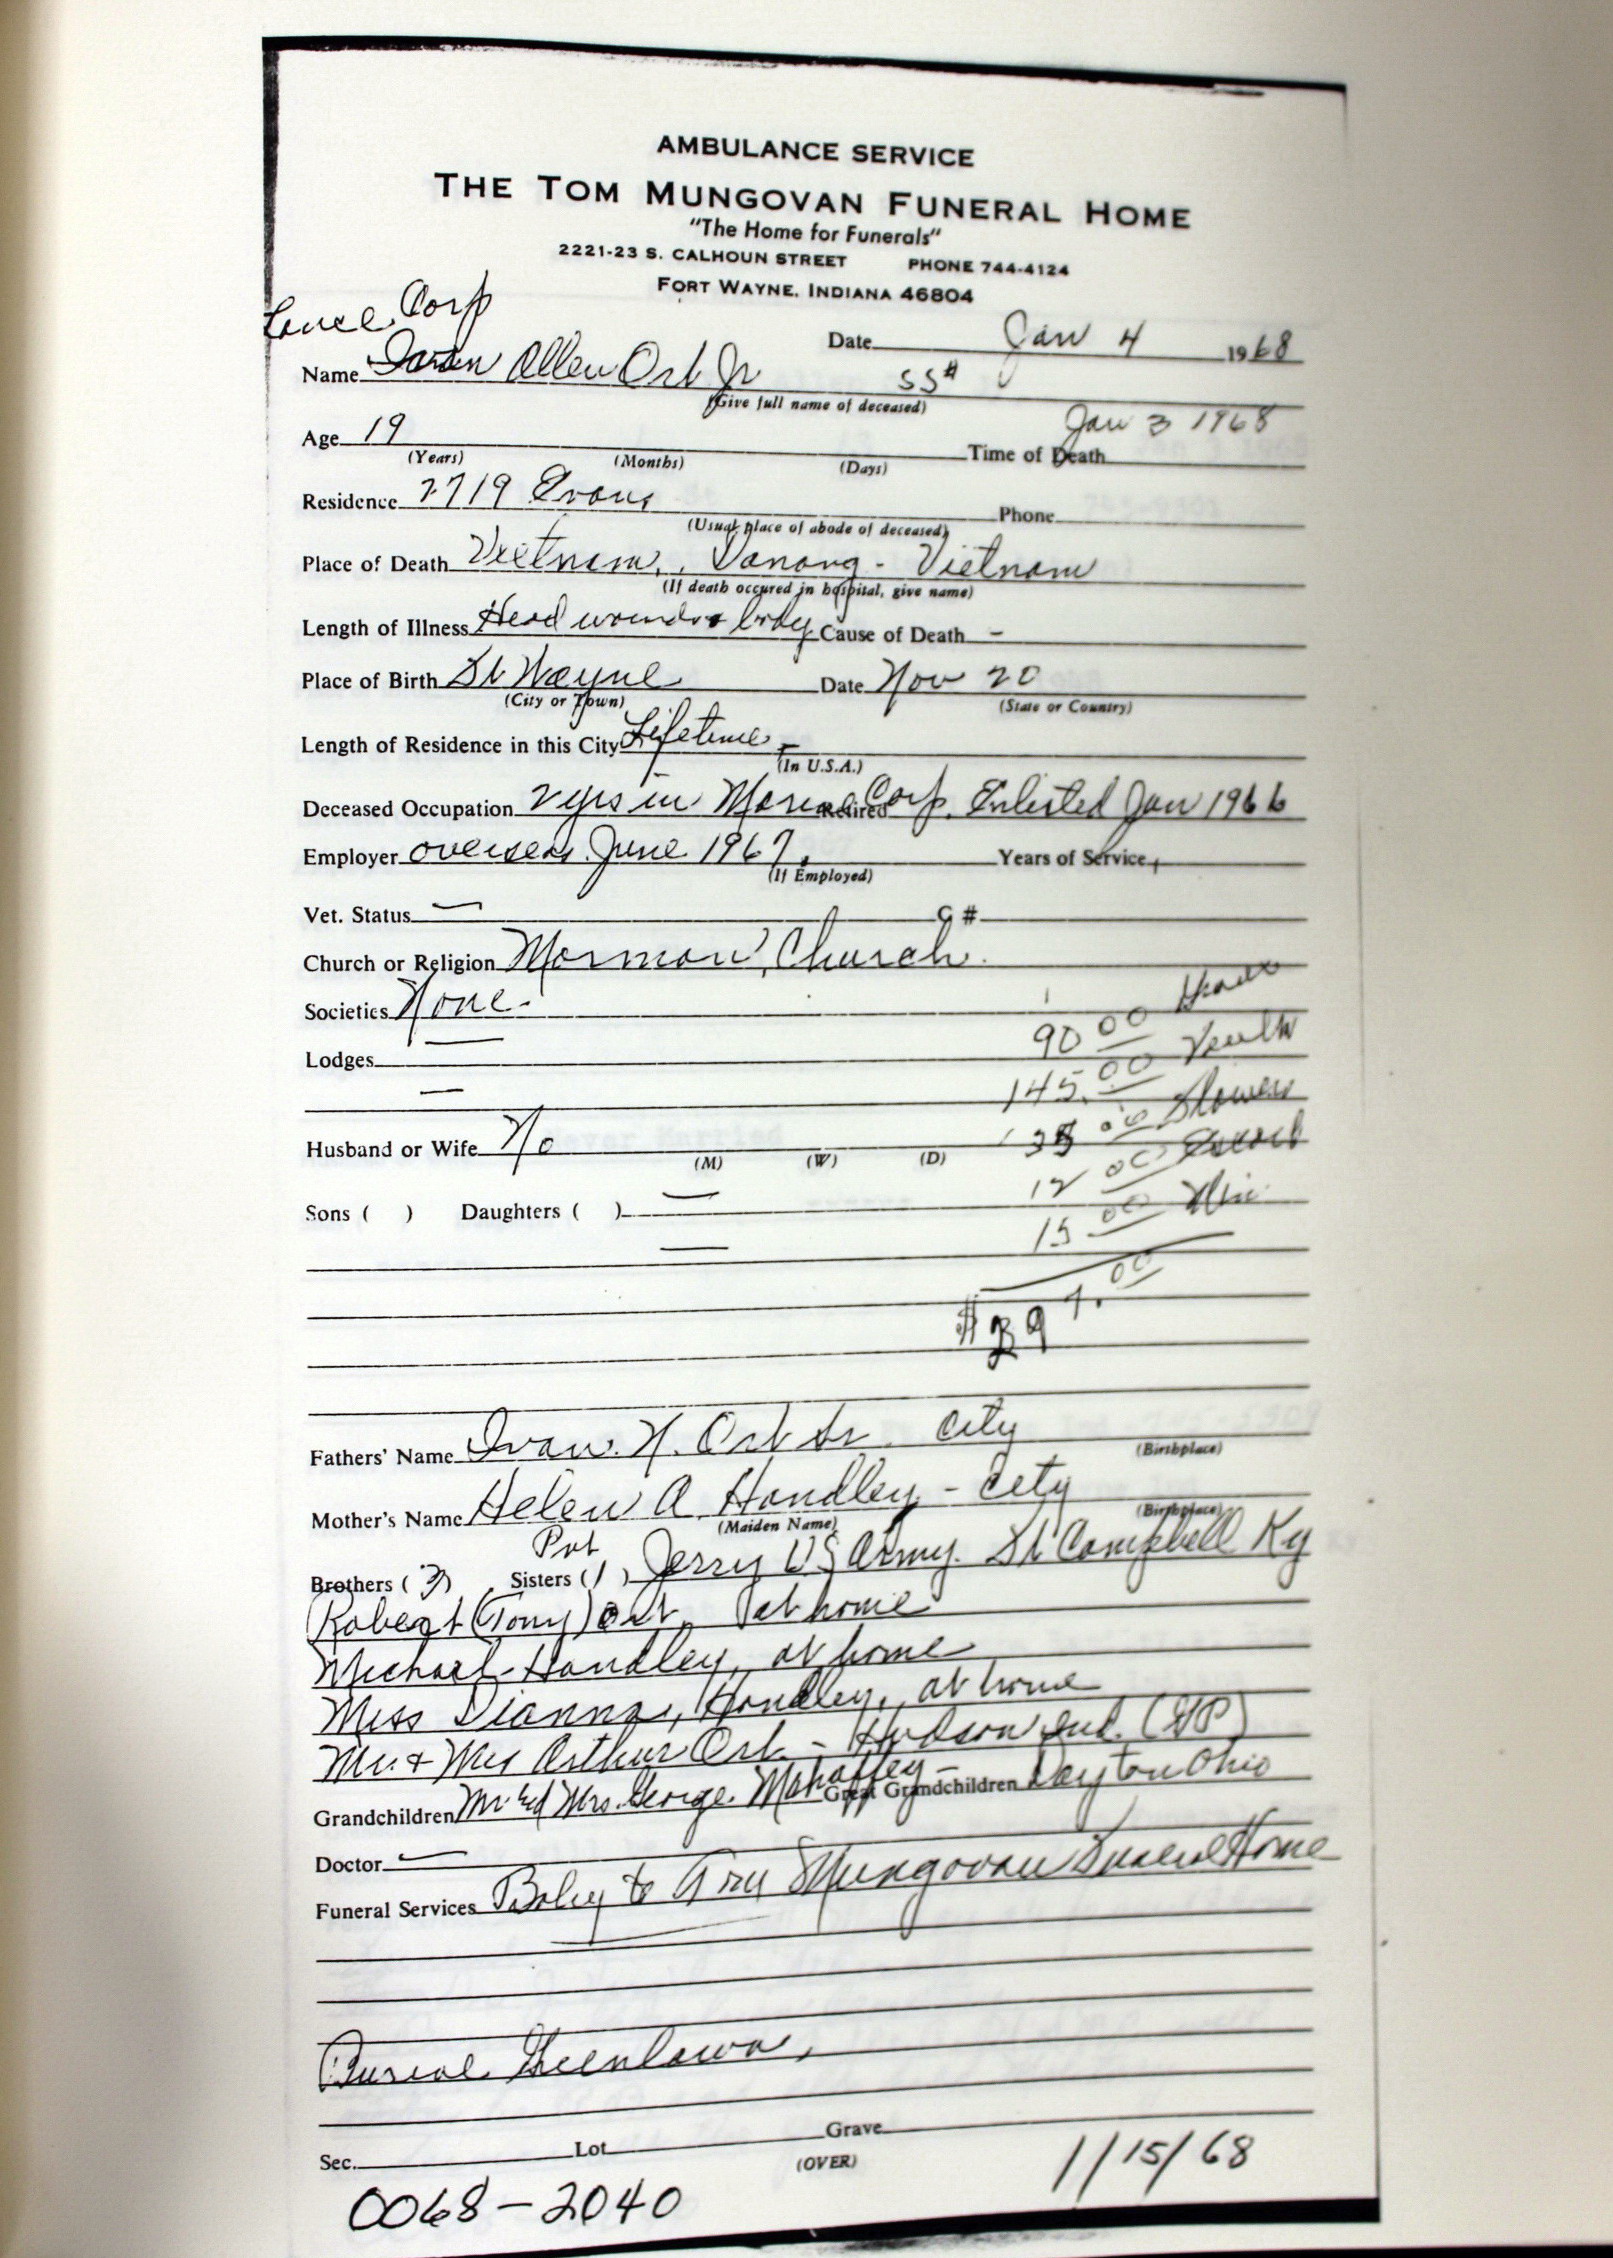 AMBULANCE SERVICE
THE TOM MUNGOVAN FUNERAL HOME
"The Home for Funerals"
2221-23 S. CALHOUN STREET PHONE 744-4124
FORT WAYNE, INDIANA 46804
Lance Corp
Date Jan 4 1968
Name Allen Ort Jr SS#
(Give full name of deceased)
Jan 3 1968
Age 19 Time of Death
(Years) (Months) (Days)
Residence 2719 Evans Phone
(Usual place of abode of deceased)
Place of Death Vietnam, Danang - Vietnam
(If death occured in hospital, give name)
Length of Illness Head wounds body Cause of Death -
Place of Birth Ft Wayne Date Nov 20
(City or Town) (State or Country)
Length of Residence in this City Lifetime -
(In U.S.A.)
Deceased Occupation 2 yrs in Marine Corp. Retired Enlisted Jan 1966
Employer overseas June 1967. Years of Service
(If Employed)
Vet. Status — C #
Church or Religion Mormon Church.
Societies None-
90 00
Lodges —
Vault
145.00
— Flowers
Husband or Wife No 35 00 Escort
(M) (W) (D)
12 00
Sons ( ) Daughters ( ) —
15 00
—
$ 297.00
Fathers' Name Ivan. N. Ort Sr. City
(Birthplace)
Mother's Name Helen A Handley - City
(Maiden Name) (Birthplace)
Pvt
Brothers (3) Sisters (1) Jerry US Army. Ft Campbell Ky
Robert (Tony) Ort, at home
Michael Handley, at home
Miss Dianna, Handley, at home
Mr. + Mrs Arthur Ort - Hudson Ind. (GP)
Grandchildren Mr Mrs. George Mahaffey - Great Grandchildren Dayton Ohio
Doctor —
Funeral Services Body to Tom Mungovan Funeral Home
Burial Greenlawn,
Sec. Lot Grave
(OVER)
1/15/68
0068-2040